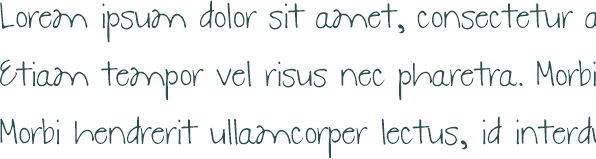 Lorem ipsum dolor sit amet, consectetur a
Etiam tempor vel risus nec pharetra. Morbi
Morbi hendrerit ullamcorper lectus, id interdu